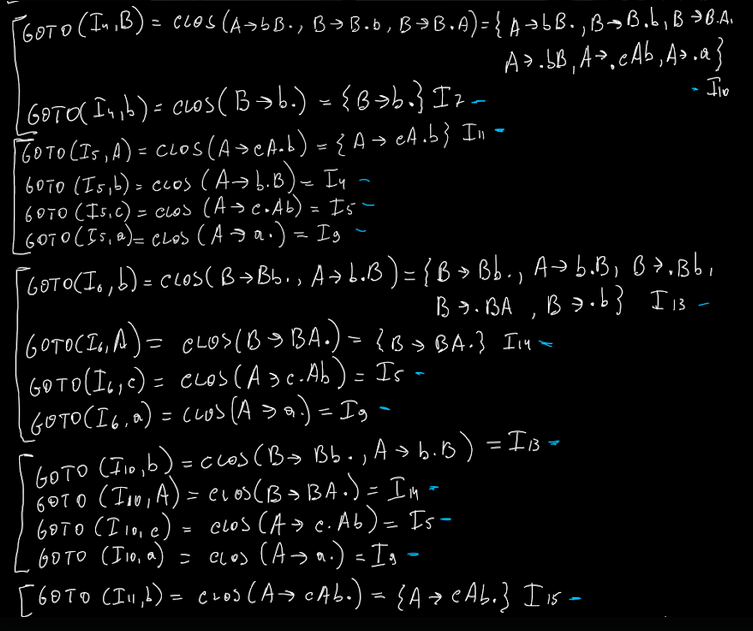 GOTO(I4,B) = CLOS(A→bB., B→B.b, B→B.A) = { A→bB., B→B.b, B→B.A,
A→.bB, A→.cAb, A→.a}
I10
GOTO(I4,b) = CLOS(B→b.) = {B→b.} I7
GOTO(I5,A) = CLOS(A→cA.b) = { A→cA.b} I11
GOTO(I5,b) = CLOS(A→b.B) = I4
GOTO(I5,c) = CLOS(A→c.Ab) = I5
GOTO(I5,a) = CLOS(A→a.) = I9
GOTO(I6,b) = CLOS(B→Bb., A→b.B) = {B→Bb., A→b.B, B→.Bb,
B→.BA, B→.b} I13
GOTO(I6,A) = CLOS(B→BA.) = {B→BA.} I14
GOTO(I6,c) = CLOS(A→c.Ab) = I5
GOTO(I6,a) = CLOS(A→a.) = I9
GOTO(I10,b) = CLOS(B→Bb., A→b.B) = I13
GOTO(I10,A) = CLOS(B→BA.) = I14
GOTO(I10,c) = CLOS(A→c.Ab) = I5
GOTO(I10,a) = CLOS(A→a.) = I9
GOTO(I11,b) = CLOS(A→cAb.) = {A→cAb.} I15